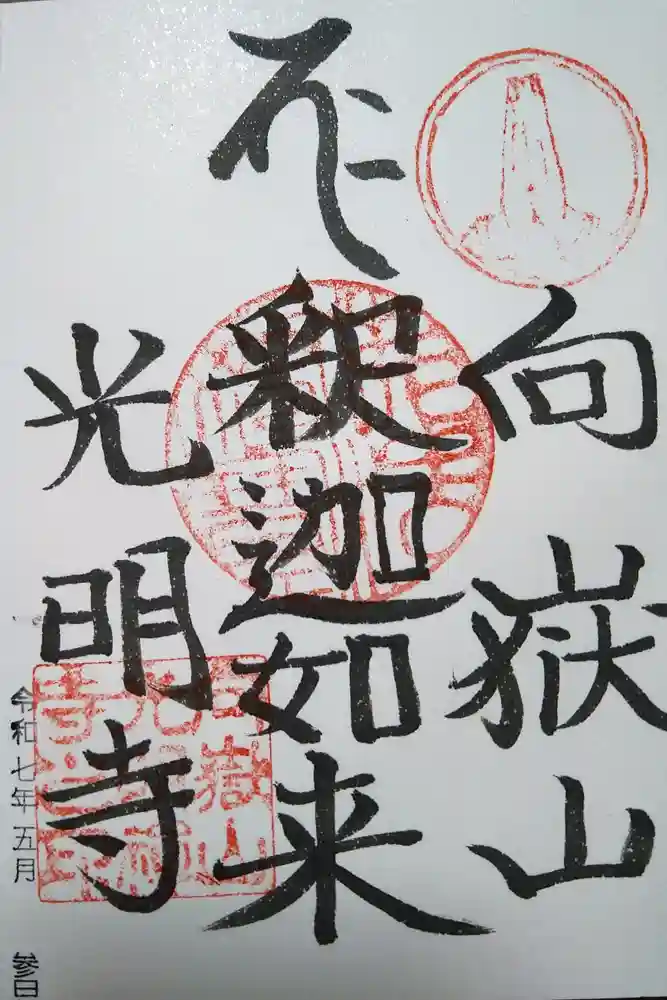 向嶽山
釈迦如来
光明寺
令和七年五月 参日